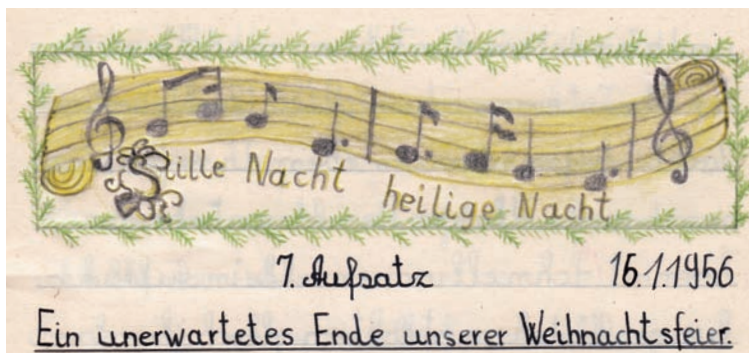 Stille Nacht heilige Nacht
7. Aufsatz 16.1.1956
Ein unerwartetes Ende unserer Weihnachtsfeier.